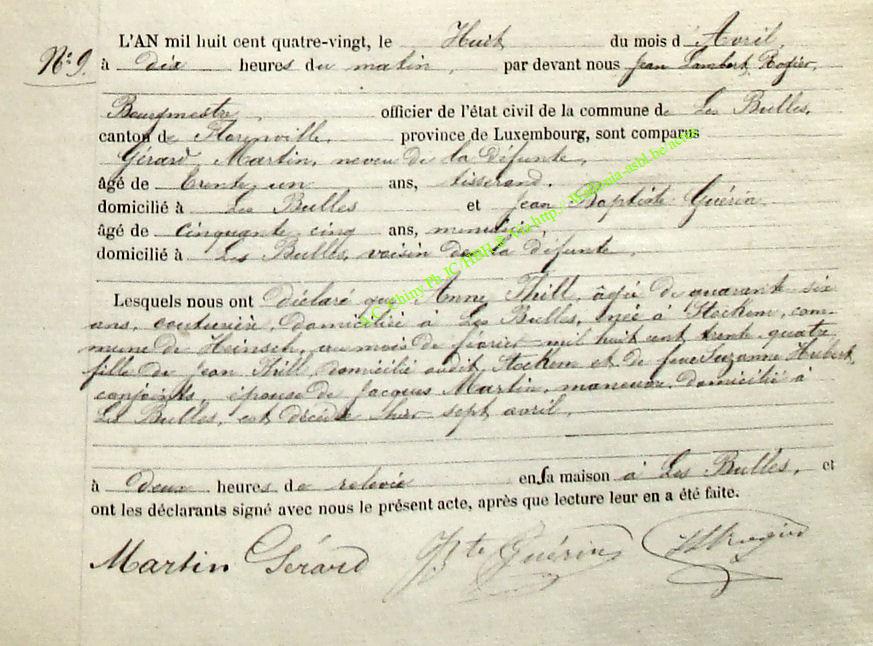 L'AN mil huit cent quatre-vingt, le Huit du mois d'Avril,
N° 9. à dix heures du matin, par devant nous Jean Lambert Rogier,
Bourgmestre, officier de l'état civil de la commune de Les Bulles,
canton de Florenville, province de Luxembourg, sont comparus
Gérard Martin, neveu de la défunte,
âgé de trente un ans, tisserand,
domicilié à Les Bulles et Jean Baptiste Guérin
âgé de cinquante cinq ans, menuisier,
domicilié à Les Bulles, voisin de la défunte,
Lesquels nous ont déclaré que Anne Thill, âgée de quarante six
ans, couturière, domiciliée à Les Bulles, née à Stockem, com-
mune de Heinsch, au mois de février mil huit cent trente quatre
fille de Jean Thill domicilié audit Stockem et de feue Suzanne Hubert,
conjoints, épouse de Jacques Martin, maneuvre, domicilié à
Les Bulles, est décédée hier sept avril,
à deux heures de relevée en sa maison à Les Bulles, et
ont les déclarants signé avec nous le présent acte, après que lecture leur en a été faite.
Martin Gérard JBte Guérin JLRogier